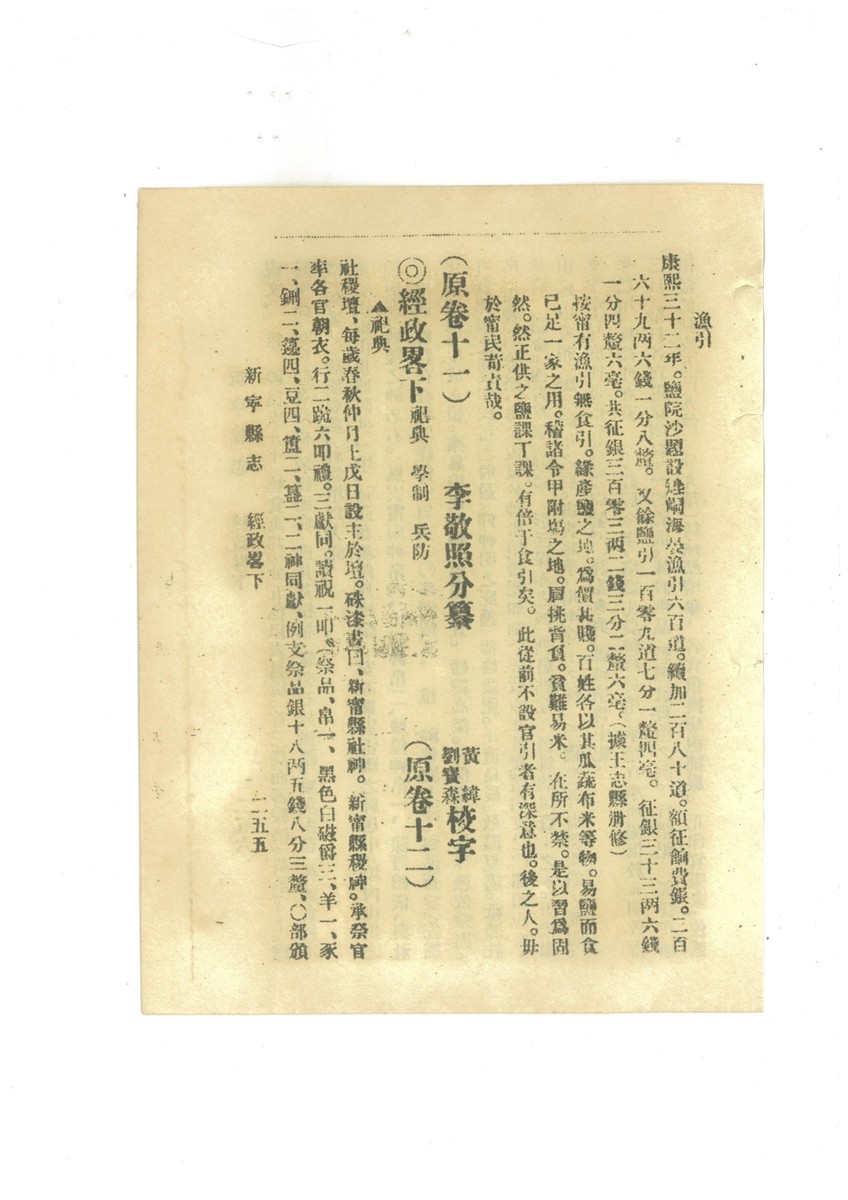 漁引
康熙三十二年。鹽院沙題設建䦨海晏漁引六百道。續加二百八十道。額征餉費銀。二百
六十九兩六錢一分八釐。又餘鹽引一百零九道七分一釐四毫。征銀三十三兩六錢
一分四釐六毫。共征銀三百零三兩二錢三分二釐六毫。（據王志縣册修）
按甯有漁引無食引。緣產鹽之地。爲價甚賤。百姓各以其瓜蔬布米等物。易鹽而食
已足一家之用。稽諸令甲附塲之地。肩挑背負。貧難易米。在所不禁。是以習爲固
然。然正供之鹽課丁課。有倍于食引矣。此從前不設官引者有深意也。後之人。毋
於甯民苛責哉。
（原卷十一） 李敬照分纂 黃緯 劉寶森 校字
◎經政畧下 祀典 學制 兵防 （原卷十二）
▲祀典
社稷壇、每歲春秋仲月上戊日設主於壇。硃漆書曰、新甯縣社神。新甯縣稷神。承祭官
率各官朝衣。行二跪六叩禮。三獻同。讀祝一叩。（祭品、帛一、黑色白磁爵三、羊一、豕
一、鉶二、籩四、豆四、簠二、簋二、二神同獻、例支祭品銀十八兩五錢八分三釐、）〇部頒
新寧縣志 經政畧下 二五五